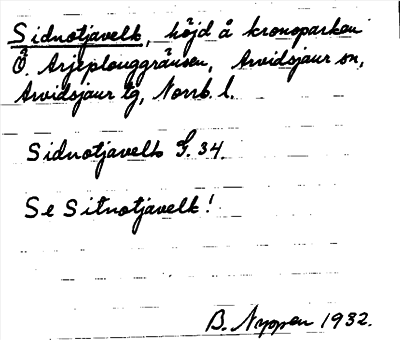 Sidnotjavelk, höjd å kronoparken
Ö. Arjeplouggränsen, Arvidsjaur sn,
Arvidsjaur tg, Norrb. l.
Sidnotjavelk G. 34.
Se Sitnotjavelk!
B. Nyppen 1932.